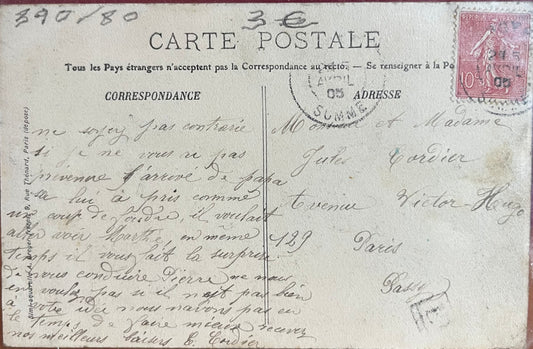 390/80
3€
CARTE POSTALE
Tous les Pays étrangers n'acceptent pas la Correspondance au recto. — Se renseigner à la Po
CORRESPONDANCE
ADRESSE
AVRIL
05
SOMME
10
AVRIL
05
Rue Thénard, Paris (déposé)
ne soyez pas contrariée
si je ne vous ai pas
prévenue l'arrivé de papa
sa lui à pris comme
un coup de foudre, il voulait
aller voir Marthe, en même
temps il vous fait la surprise
de vous conduire Pierre ne nous
en voulez pas si il n'est pas bien
à votre idée nous n'avons pas eu
le temps de faire mieux recevez
nos meilleurs baisers E. Cordier
Monsieur et Madame
Jules Cordier
Avenue Victor-Hugo
129 Paris
Passy